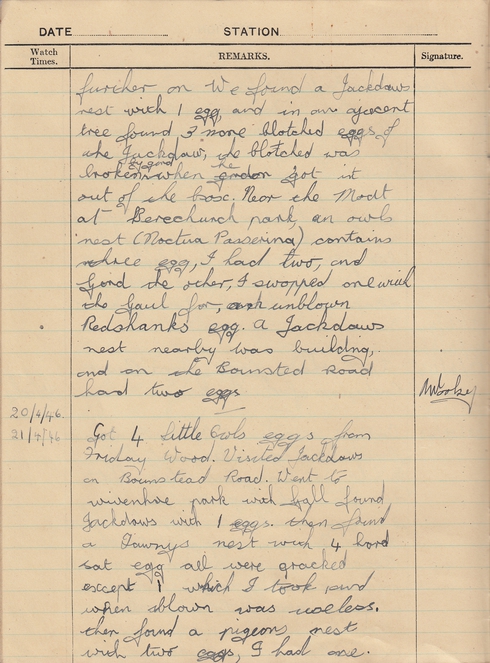 DATE STATION
Watch Times. REMARKS. Signature.
further on We found a Jackdaws
nest with 1 egg, and in an ajecent
tree found 3 more blotched eggs of
the Jackdaw, the blotched was
by gord the
broken when gordon got it
out of the box. Near the Moat
at Berechurch park, an owls
nest (Noctua Passerina) contains
three egg, I had two, and
Gord the other, I swopped one with
the Gaul for, unblown
Redshanks egg. A Jackdaws
nest nearby was building,
and on the Bounsted Road
had two eggs
20/4/46.
21/4/46 Got 4 little Owls eggs from
Friday Wood. Visited Jackdaws
on Bounstead Road. Went to
wivenhoe park with Gall found
Jackdaws with 1 eggs. then found
a Tawnys nest with 4 hard
sat egg all were cracked
except 1 which I took and
when blown was useless.
then found a pigeons nest
with two eggs, I had one.